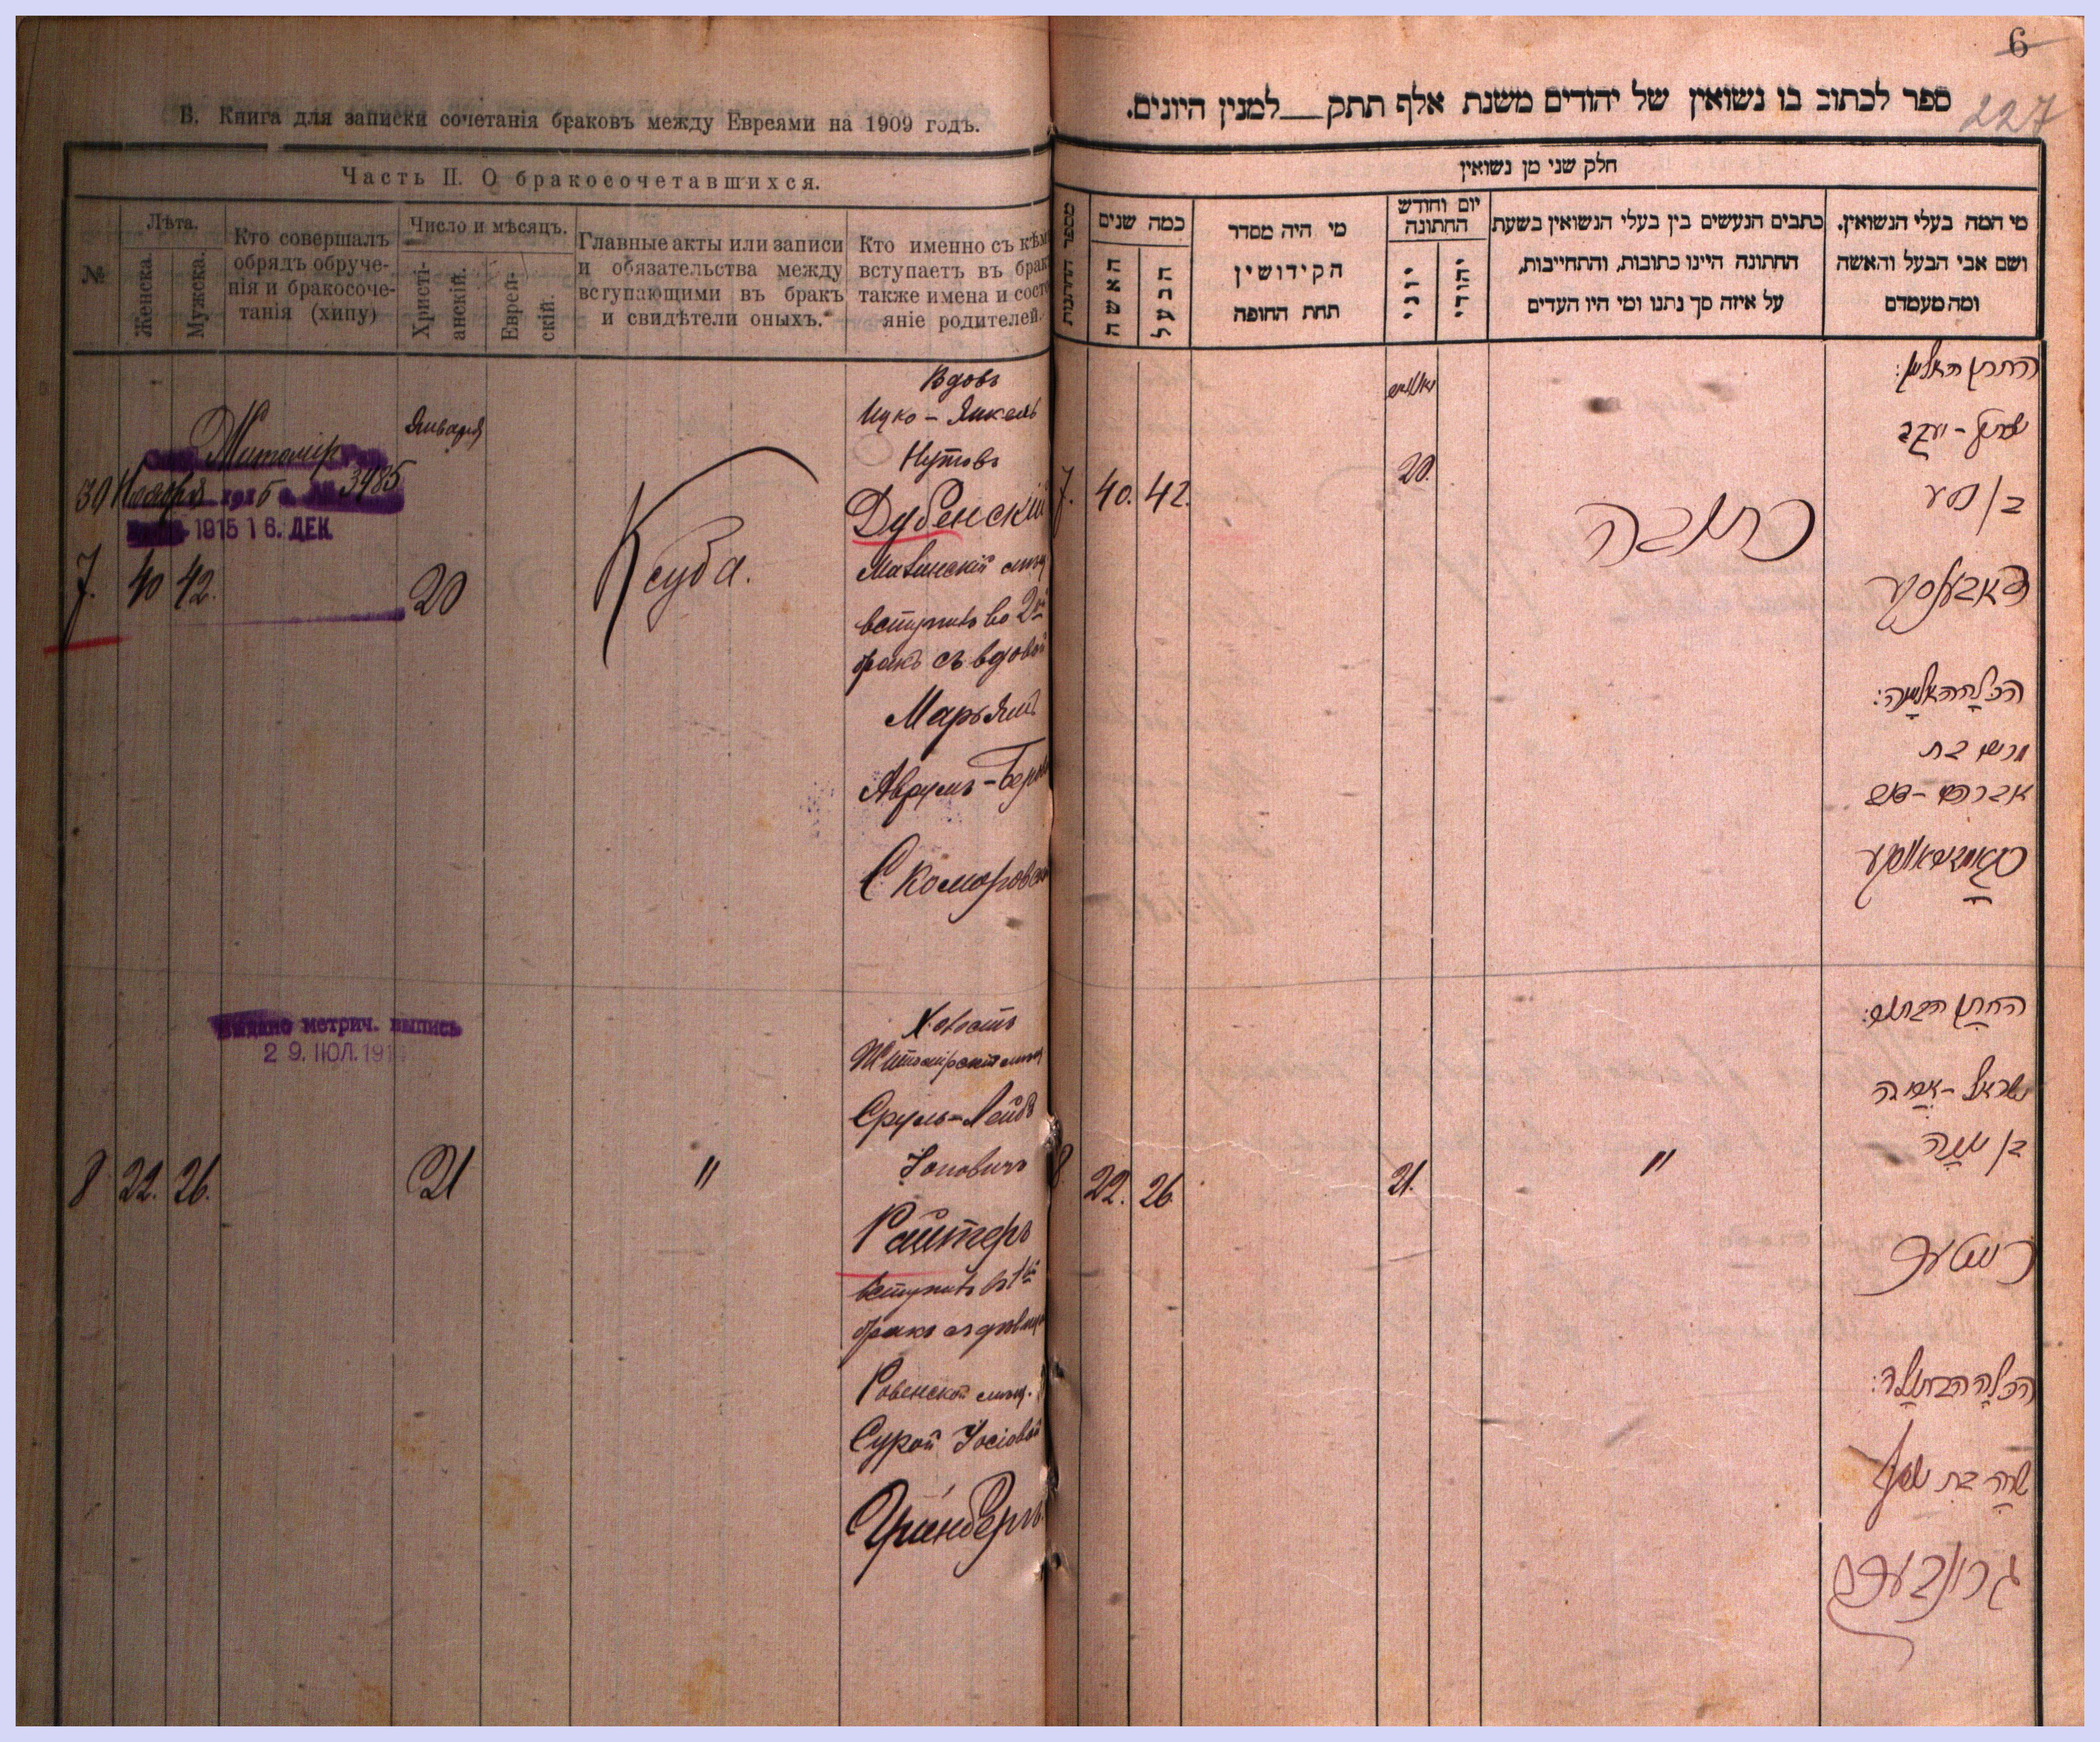 В. Книга для записки сочетанія браковъ между Евреями на 1909 годъ.
Часть II. О бракосочетавшихся.
№
Лѣта.
Женска.
Мужска.
Кто совершалъ
обрядъ обруче-
нія и бракосоче-
танія (хипу)
Число и мѣсяцъ.
Христі-
анскій.
Еврей-
скій.
Главные акты или записи
и обязательства между
вступающими въ бракъ
и свидѣтели оныхъ.
Кто именно съ кѣмъ
вступаетъ въ бракъ
также имена и состо
яніе родителей.
Житомір
30 Ноября 1915 г. № 3485
1915 16. ДЕК
Января
7. 40 42. 20
Ксуба.
Вдовъ
Ицко-Янкель
Нутовъ
Дубенскій
вступитъ во 2й
бракъ съ вдовой
Марьямъ
Аврумъ-Бер
Скоморовск
Выдано метрич. выпись
29. ІЮЛ. 191
8 22. 26. 21 "
Холостъ
Житомірскій мѣщ
Сруль-Лейб
Рейтеръ
вступитъ въ 1й
бракъ съ дѣвиц
Ровенской мѣщ.
Сурой Іосіовой
Гринбергъ
6
227
ספר לכתוב בו נשואין של יהודים משנת אלף תתק__למנין היונים.
חלק שני מן נשואין
מספר החתונות
כמה שנים
האשה
הבעל
מי היה מסדר
הקידושין
תחת החופה
יום וחודש
החתונה
יוני
יהודי
כתבים הנעשים בין בעלי הנשואין בשעת
החתונה היינו כתובות, והתחייבות,
על איזה סך נתנו ומי היו העדים
מי המה בעלי הנשואין.
ושם אבי הבעל והאשה
ומה מעמדם
יאנואר
7. 40. 42. 20.
כתובה
החתן האלמן:
יצחק-יעקב
בן נטע
דובענסקי
הכלה האלמנה:
מרים בת
אברהם-בער
סקאמאראווסקי
8. 22. 26 21. "
החתן הבתול:
ישראל-אריה
בן יונה
רייטער
הכלה הבתולה:
שרה בת יוסף
גרינבערג